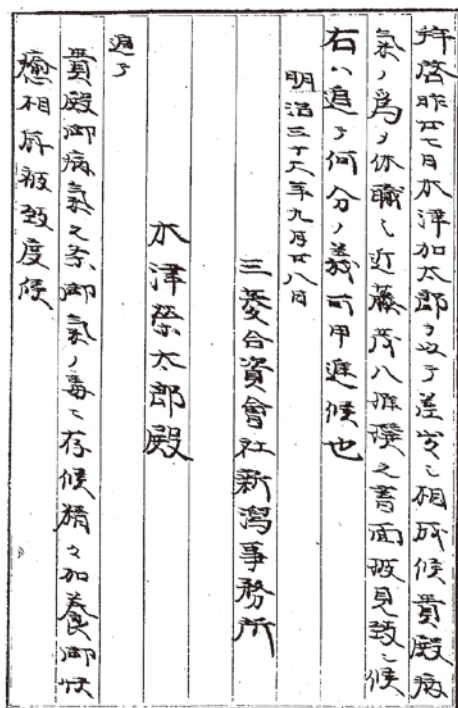 拝啓昨廿七日水津加太郎ヲ以テ差出ニ相成候貴殿病
氣ノ爲メ休職ニ近藤茂八推擧之書面披見致シ候
右ハ追テ何分ノ義可申進候也
明治三十六年九月廿八日
三菱合資會社新潟事務所
水津榮太郎殿
追テ
貴殿御病氣之条御氣ノ毒ニ存候精々加養御快
癒相成被致度候